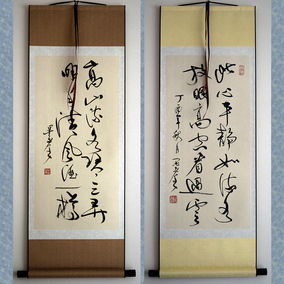 高山流水琴三弄
明月清风酒一樽
此心平静如流水
放眼高空看过云